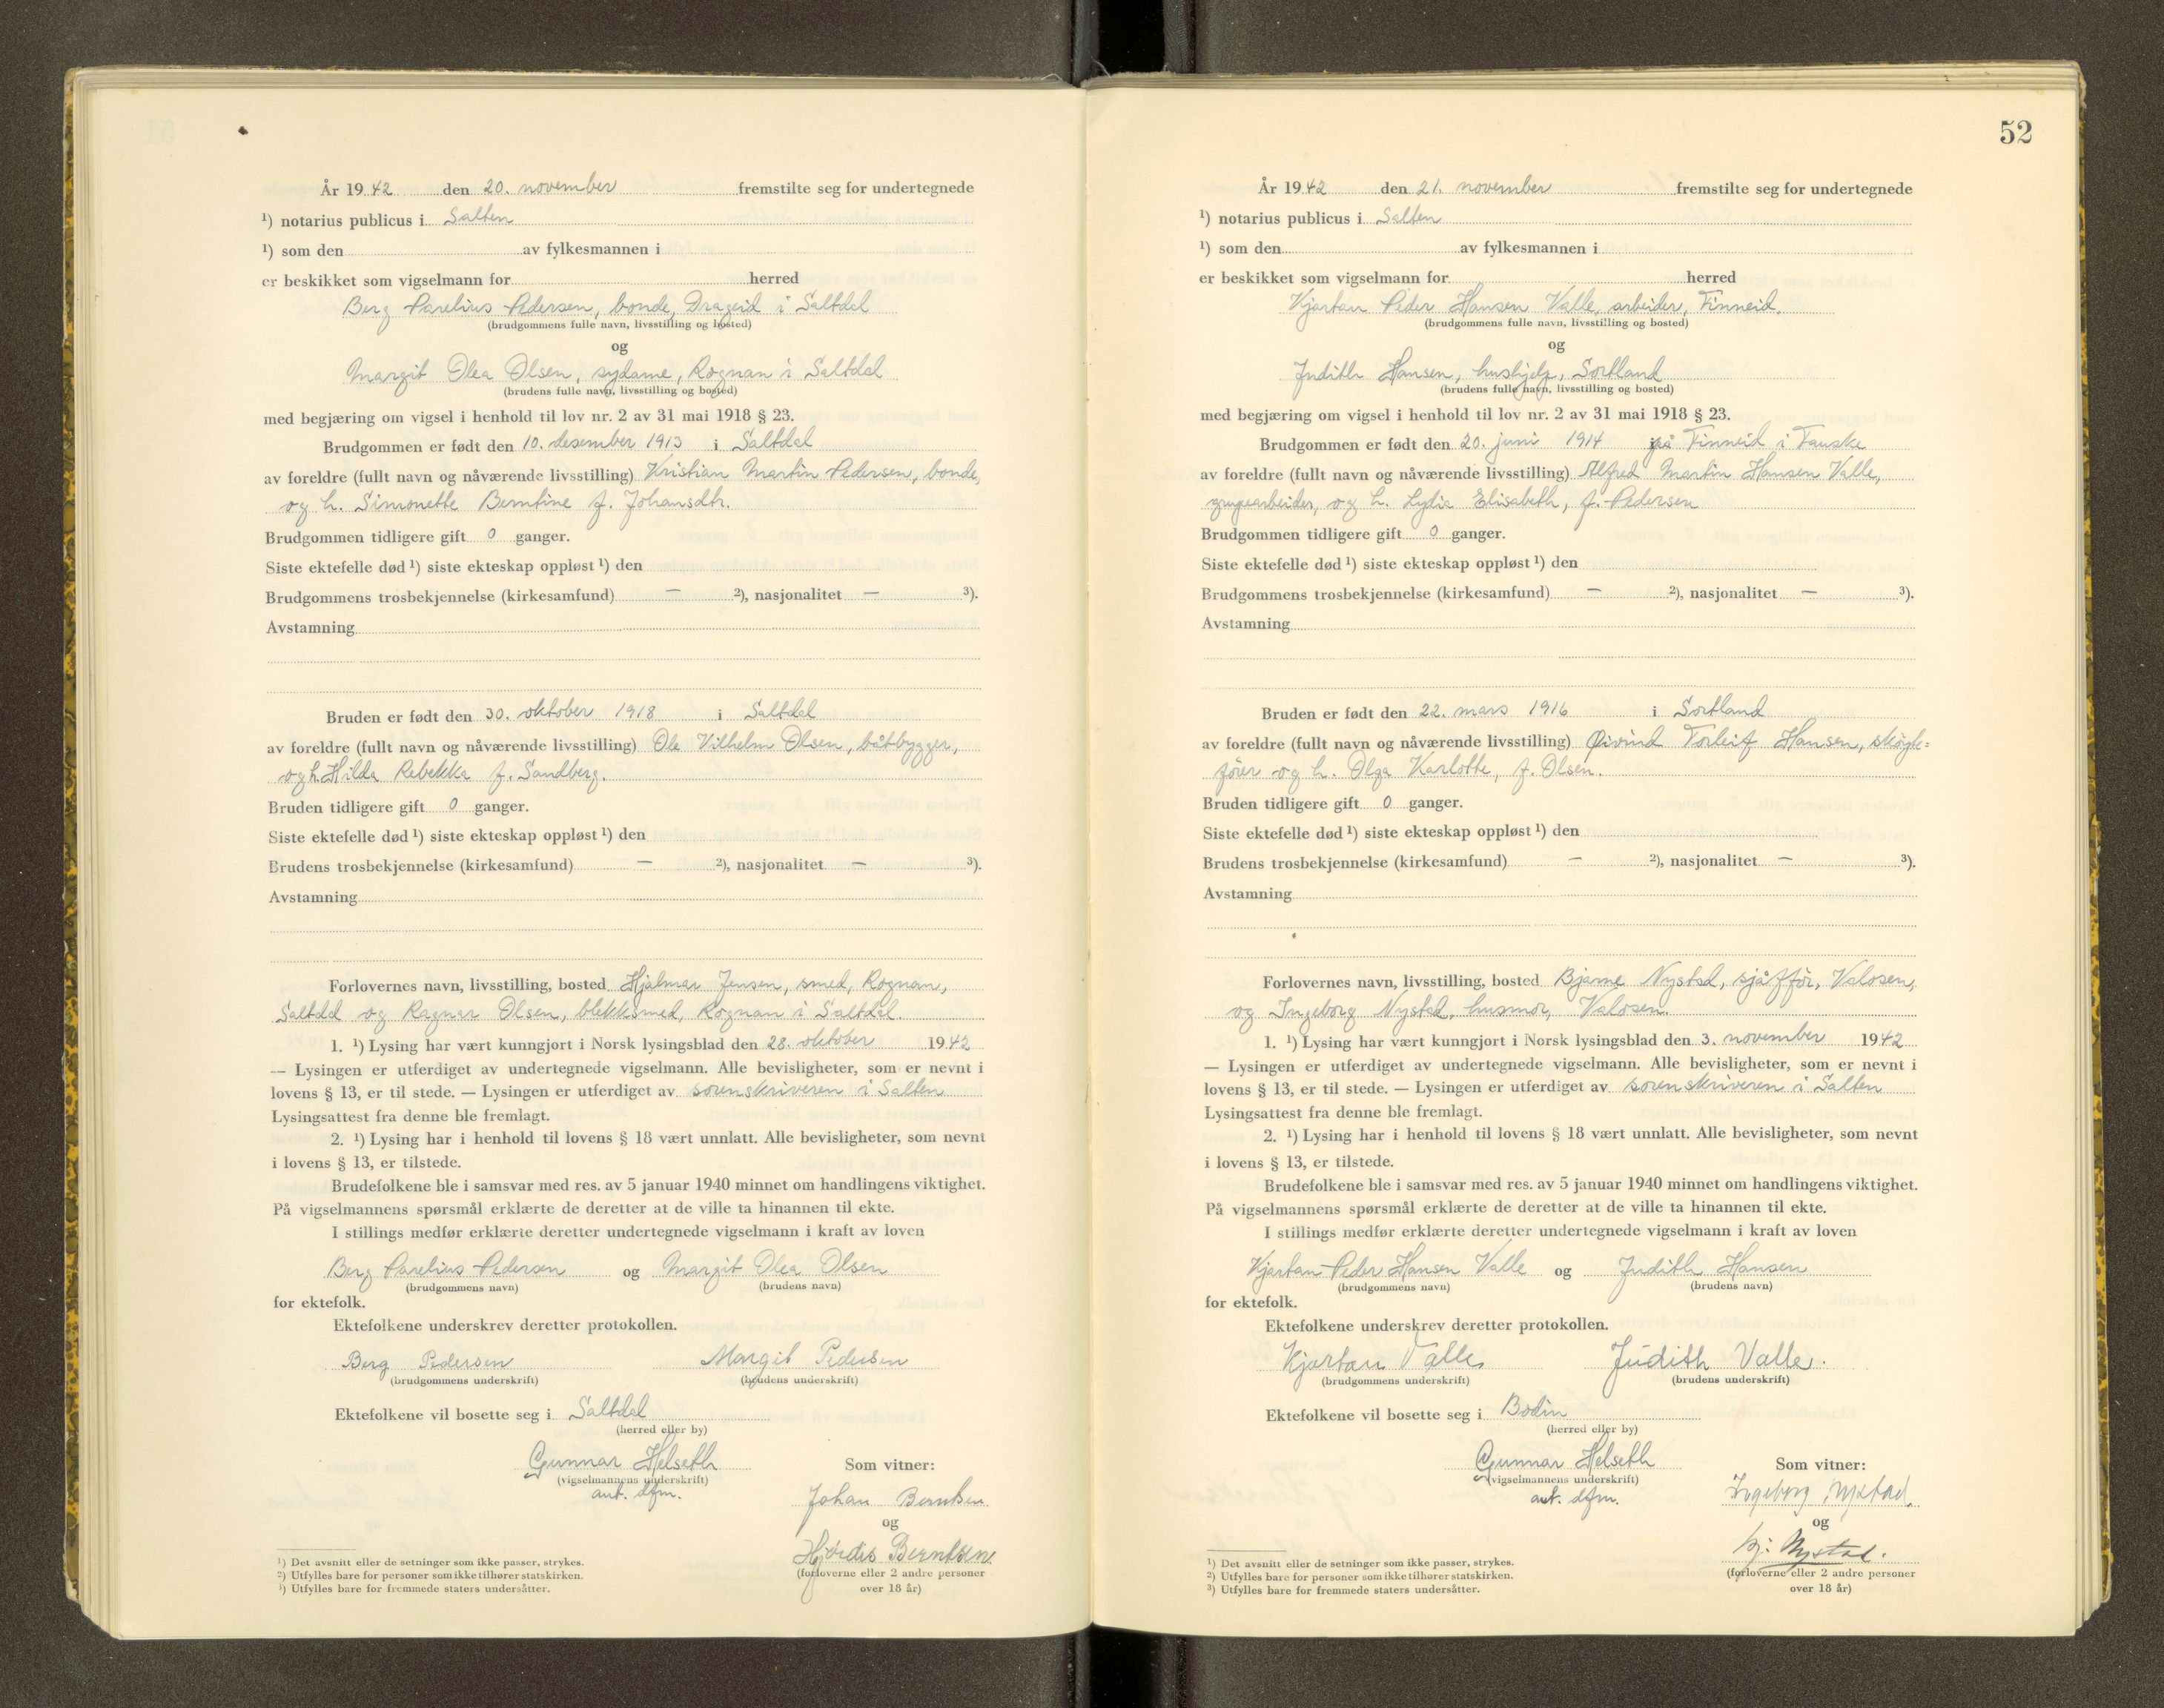 År 1942 den 20. november fremstilte seg for undertegnede
¹) notarius publicus i Salten
¹) som den av fylkesmannen i
er beskikket som vigselmann for herred
Berg Parelius Pedersen, bonde, Drageid i Saltdal
(brudgommens fulle navn, livsstilling og bosted)
og
Margit Olea Olsen, sydame, Rognan i Saltdal
(brudens fulle navn, livsstilling og bosted)
med begjæring om vigsel i henhold til lov nr. 2 av 31 mai 1918 § 23.
Brudgommen er født den 10. desember 1913 i Saltdal
av foreldre (fullt navn og nåværende livsstilling) Kristian Martin Pedersen, bonde,
og h. Simonette Berntine f. Johansdtr.
Brudgommen tidligere gift 0 ganger.
Siste ektefelle død ¹) siste ekteskap oppløst ¹) den
Brudgommens trosbekjennelse (kirkesamfund) — ²), nasjonalitet — ³).
Avstamning
Bruden er født den 30. oktober 1918 i Saltdal
av foreldre (fullt navn og nåværende livsstilling) Ole Vilhelm Olsen, båtbygger,
og h. Hilda Rebekka f. Sandberg.
Bruden tidligere gift 0 ganger.
Siste ektefelle død ¹) siste ekteskap oppløst ¹) den
Brudens trosbekjennelse (kirkesamfund) — ²), nasjonalitet — ³).
Avstamning
Forlovernes navn, livsstilling, bosted Hjalmar Jensen, smed, Rognan,
Saltdal og Ragnar Olsen, blekksmed, Rognan i Saltdal.
1. ¹) Lysing har vært kunngjort i Norsk lysingsblad den 28. oktober 1942
— Lysingen er utferdiget av undertegnede vigselmann. Alle bevisligheter, som er nevnt i
lovens § 13, er til stede. — Lysingen er utferdiget av sorenskriveren i Salten
Lysingsattest fra denne ble fremlagt.
2. ¹) Lysing har i henhold til lovens § 18 vært unnlatt. Alle bevisligheter, som nevnt
i lovens § 13, er tilstede.
Brudefolkene ble i samsvar med res. av 5 januar 1940 minnet om handlingens viktighet.
På vigselmannens spørsmål erklærte de deretter at de ville ta hinannen til ekte.
I stillings medfør erklærte deretter undertegnede vigselmann i kraft av loven
Berg Parelius Pedersen og Margit Olea Olsen
(brudgommens navn) (brudens navn)
for ektefolk.
Ektefolkene underskrev deretter protokollen.
Berg Pedersen Margit Pedersen
(brudgommens underskrift) (brudens underskrift)
Ektefolkene vil bosette seg i Saltdal
(herred eller by)
Gunnar Helseth Som vitner:
(vigselmannens underskrift)
aut. dfm.
Johan Berntsen
og
Hjørdis Berntsen
(forloverne eller 2 andre personer
over 18 år)
¹) Det avsnitt eller de setninger som ikke passer, strykes.
²) Utfylles bare for personer som ikke tilhører statskirken.
³) Utfylles bare for fremmede staters undersåtter.
52
År 1942 den 21. november fremstilte seg for undertegnede
¹) notarius publicus i Salten
¹) som den av fylkesmannen i
er beskikket som vigselmann for herred
Kjartan Peder Hansen Valle, arbeider, Finneid.
(brudgommens fulle navn, livsstilling og bosted)
og
Judith Hansen, hushjelp, Sortland
(brudens fulle navn, livsstilling og bosted)
med begjæring om vigsel i henhold til lov nr. 2 av 31 mai 1918 § 23.
Brudgommen er født den 20. juni 1914 på Finneid i Fauske
av foreldre (fullt navn og nåværende livsstilling) Alfred Martin Hansen Valle,
grupearbeider, og h. Lydia Elisabeth, f. Pedersen
Brudgommen tidligere gift 0 ganger.
Siste ektefelle død ¹) siste ekteskap oppløst ¹) den
Brudgommens trosbekjennelse (kirkesamfund) — ²), nasjonalitet — ³).
Avstamning
Bruden er født den 22. mars 1916 i Sortland
av foreldre (fullt navn og nåværende livsstilling) Øivind Torleif Hansen, skøyte=
fører og h. Olga Karlotte, f. Olsen.
Bruden tidligere gift 0 ganger.
Siste ektefelle død ¹) siste ekteskap oppløst ¹) den
Brudens trosbekjennelse (kirkesamfund) — ²), nasjonalitet — ³).
Avstamning
Forlovernes navn, livsstilling, bosted Bjarne Nystad, sjåffør, Valosen,
og Ingeborg Nystad, husmor, Valosen.
1. ¹) Lysing har vært kunngjort i Norsk lysingsblad den 3. november 1942
— Lysingen er utferdiget av undertegnede vigselmann. Alle bevisligheter, som er nevnt i
lovens § 13, er til stede. — Lysingen er utferdiget av sorenskriveren i Salten
Lysingsattest fra denne ble fremlagt.
2. ¹) Lysing har i henhold til lovens § 18 vært unnlatt. Alle bevisligheter, som nevnt
i lovens § 13, er tilstede.
Brudefolkene ble i samsvar med res. av 5 januar 1940 minnet om handlingens viktighet.
På vigselmannens spørsmål erklærte de deretter at de ville ta hinannen til ekte.
I stillings medfør erklærte deretter undertegnede vigselmann i kraft av loven
Kjartan Peder Hansen Valle og Judith Hansen
(brudgommens navn) (brudens navn)
for ektefolk.
Ektefolkene underskrev deretter protokollen.
Kjartan Valle Judith Valle.
(brudgommens underskrift) (brudens underskrift)
Ektefolkene vil bosette seg i Bodin
(herred eller by)
Gunnar Helseth Som vitner:
(vigselmannens underskrift)
aut. dfm.
Ingeborg Nystad
og
Bj. Nystad.
(forloverne eller 2 andre personer
over 18 år)
¹) Det avsnitt eller de setninger som ikke passer, strykes.
²) Utfylles bare for personer som ikke tilhører statskirken.
³) Utfylles bare for fremmede staters undersåtter.